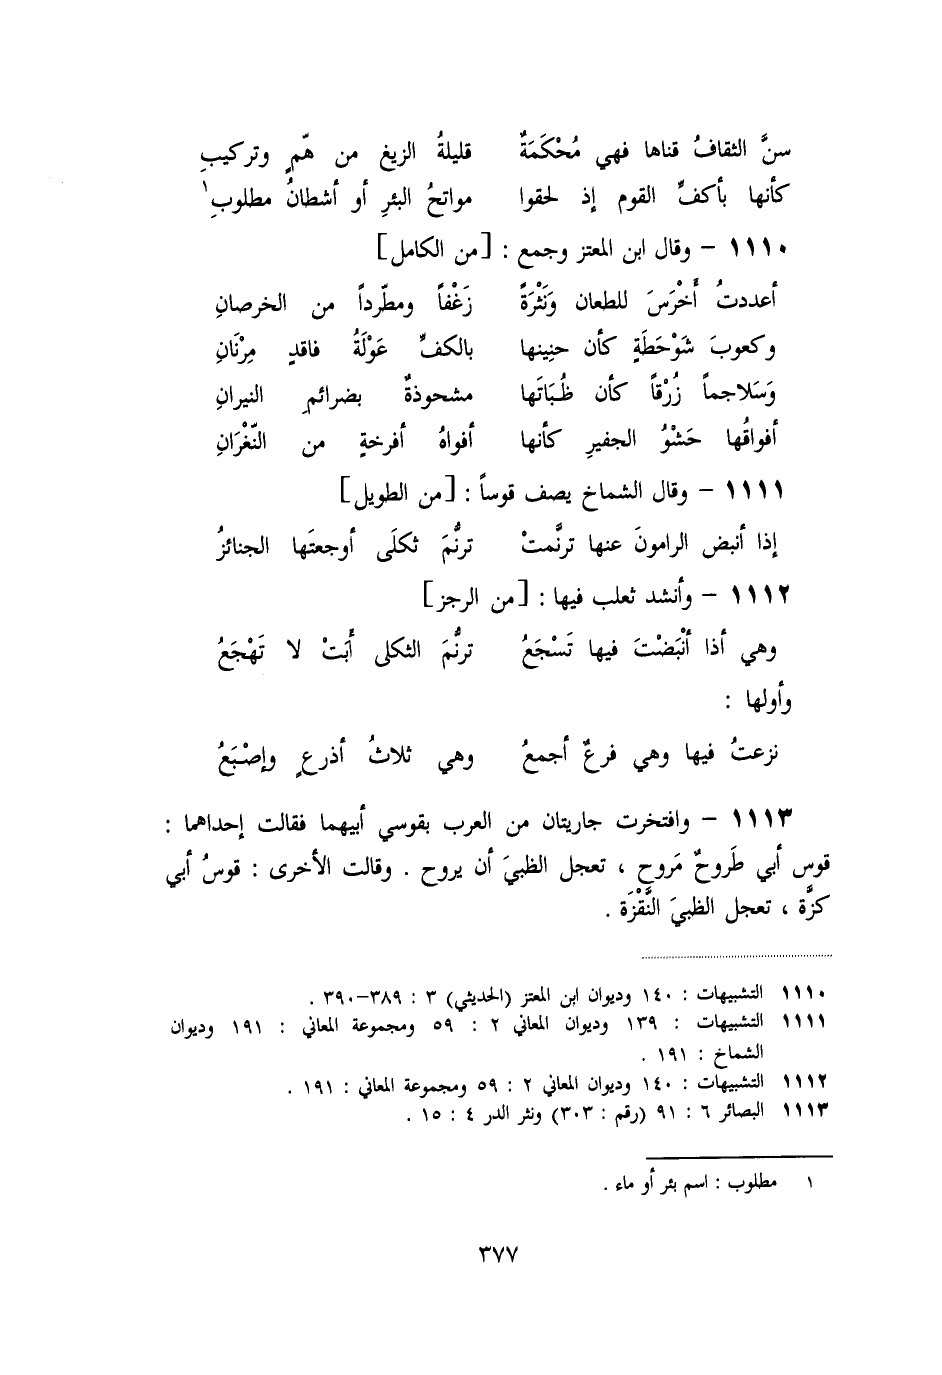 سنَّ الثقافُ قناها فهي مُحْكَمَةٌ قليلةُ الزيغ من همّ وتركيبِ
كأنها بأكفِّ القوم إذ لحقوا مواتحُ البئرِ أو أشطانُ مطلوبِ١
١١١٠ – وقال ابن المعتز وجمع : [من الكامل]
أعددتُ أَخْرَسَ للطعان وَنَثْرَةً زَغْفاً ومطّرداً من الخرصانِ
وكعوبَ شَوْحَطَةٍ كأن حنِينها بالكفِّ عَوْلَةُ فاقدٍ مِرْنَانِ
وَسَلاجماً زُرْقاً كأن ظُبَاتَها مشحوذةٌ بضرائمِ النيرانِ
أفواقُها حَشْوُ الجفيرِ كأنها أفواهُ أفرخةٍ من النّغْرَانِ
١١١١ – وقال الشماخ يصف قوساً : [من الطويل]
إذا أنبض الرامونَ عنها ترنَّمتْ ترنُّمَ ثكلَى أوجعتَها الجنائزُ
١١١٢ – وأنشد ثعلب فيها : [من الرجز]
وهي أذا أنْبَضْتَ فيها تَسْجَعُ ترنُّمَ الثكلى أَبَتْ لا تَهْجَعُ
وأولها :
نزعتُ فيها وهي فرعٌ أجمعُ وهي ثلاثُ أذرعٍ وإصْبَعُ
١١١٣ – وافتخرت جاريتان من العرب بقوسي أبيهما فقالت إحداهما :
قوس أبي طَروحٌ مَروح ، تعجل الظبيَ أن يروح . وقالت الأخرى : قوسُ أبي
كزَّة ، تعجل الظبيَ النَّقْزَة .
١١١٠ التشبيهات : ١٤٠ وديوان ابن المعتز (الحديثي) ٣ : ٣٨٩–٣٩٠ .
١١١١ التشبيهات : ١٣٩ وديوان المعاني ٢ : ٥٩ ومجموعة المعاني : ١٩١ وديوان
الشماخ : ١٩١ .
١١١٢ التشبيهات : ١٤٠ وديوان المعاني ٢ : ٥٩ ومجموعة المعاني : ١٩١ .
١١١٣ البصائر ٦ : ٩١ (رقم : ٣٠٣) ونثر الدر ٤ : ١٥ .
١ مطلوب : اسم بئر أو ماء .
٣٧٧